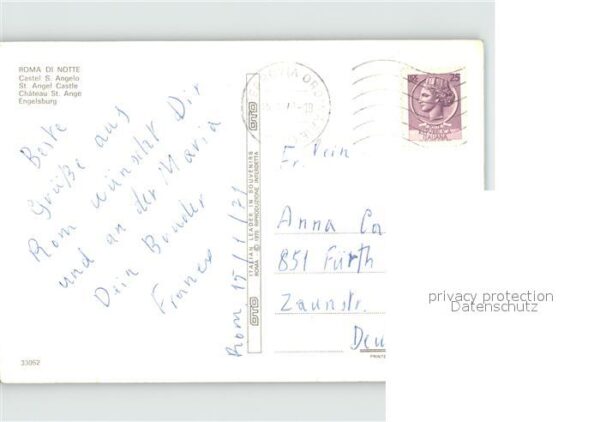 ROMA DI NOTTE
Castel S. Angelo
St. Angel Castle
Château St. Ange
Engelsburg
Beste
Grüße aus
Rom wünscht Dir
und an der Maria
Dein Bruder
Rom, 15/1/71
OTO
ITALIAN LEADER IN SOUVENIRS
ROMA © 1970 RIPRODUZIONE INTERDETTA
OTO
25
Anna Ca
851 Fürth
Zaunstr.
Deu
PRINTE
33052
privacy protection
Datenschutz